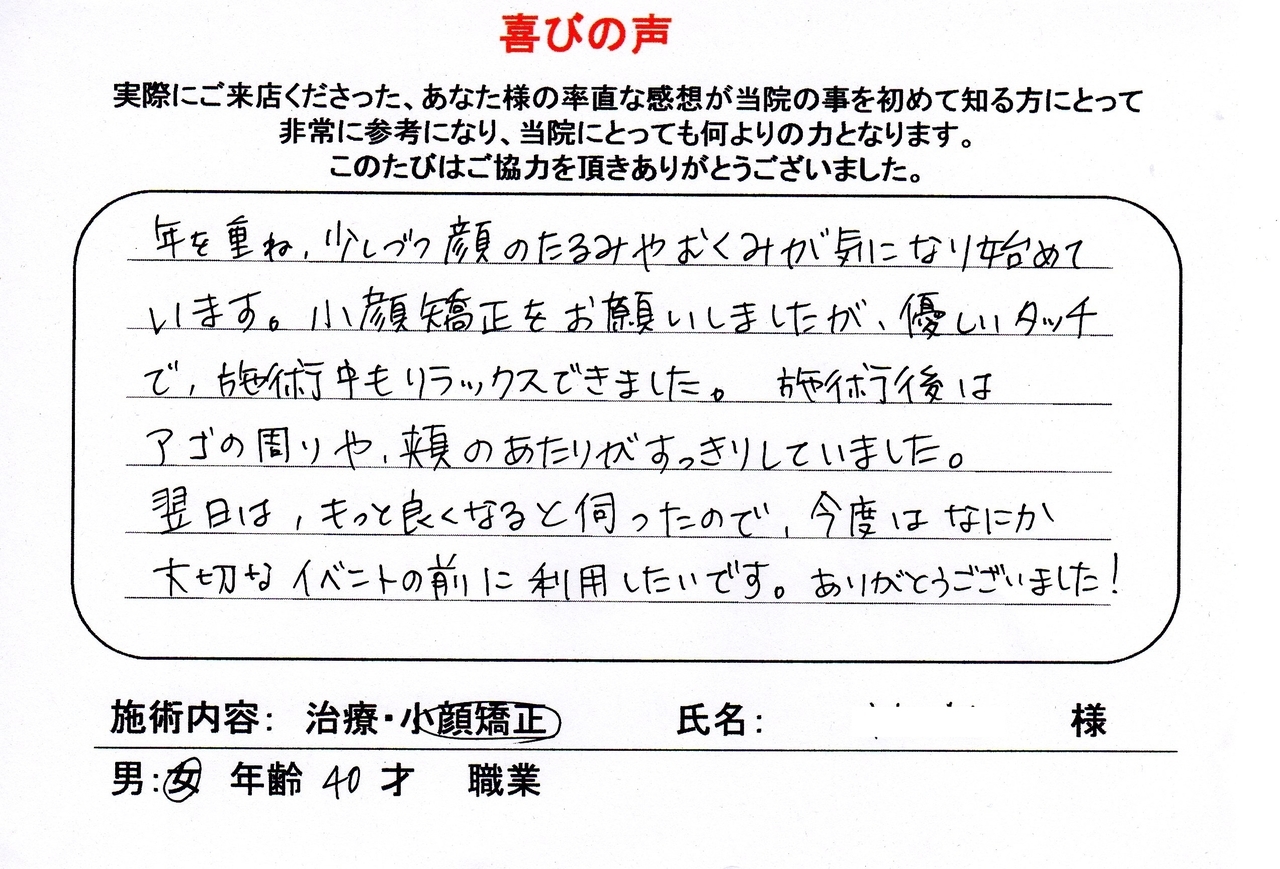 喜びの声
実際にご来店くださった、あなた様の率直な感想が当院の事を初めて知る方にとって
非常に参考になり、当院にとっても何よりの力となります。
このたびはご協力を頂きありがとうございました。
年を重ね、少しづつ顔のたるみやむくみが気になり始めて
います。小顔矯正をお願いしましたが、優しいタッチ
で、施術中もリラックスできました。 施術後は
アゴの周りや、頬のあたりがすっきりしていました。
翌日は、もっと良くなると伺ったので、今度はなにか
大切なイベントの前に利用したいです。ありがとうございました!
施術内容: 治療・小顔矯正 氏名: 様
男:女 年齢 40 才 職業